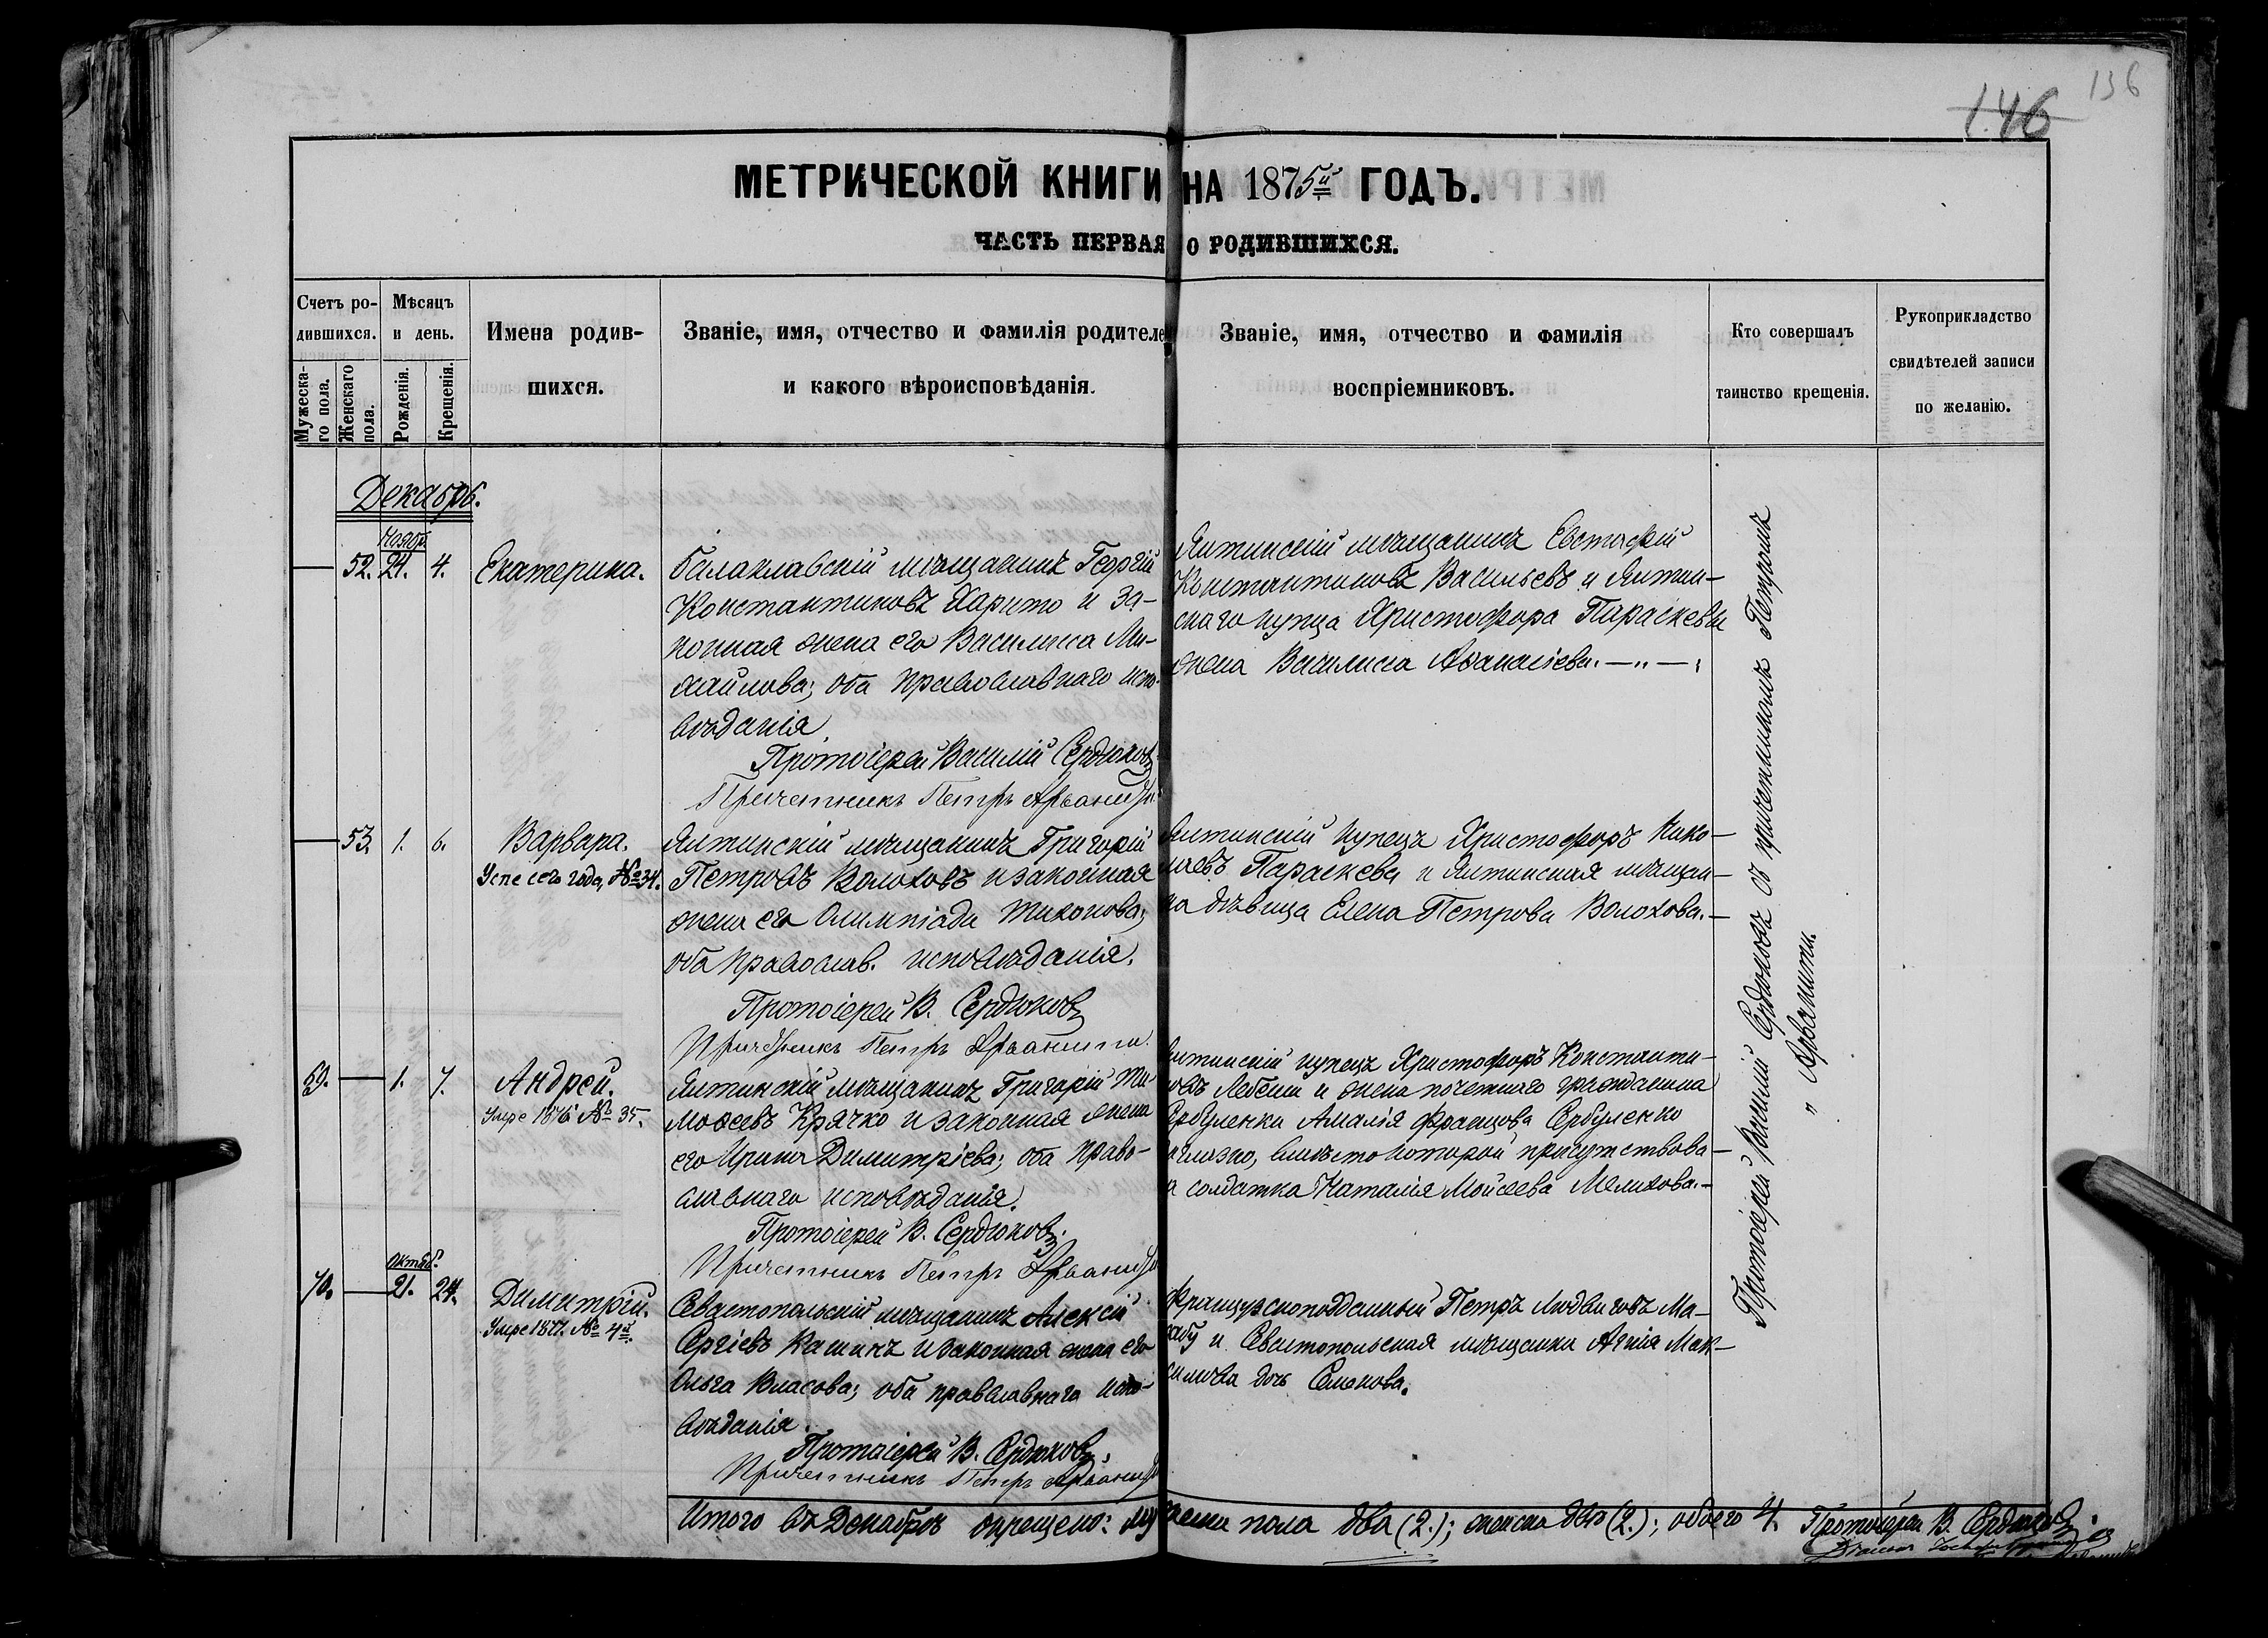 136
146
МЕТРИЧЕСКОЙ КНИГИ НА 1875й ГОДЪ.
ЧАСТЬ ПЕРВАЯ О РОДИВШИХСЯ.
Счетъ родившихся.
Мужескаго пола.
Женскаго пола.
Мѣсяцъ и день.
Рожденія.
Крещенія.
Имена родив-
шихся.
Званіе, имя, отчество и фамилія родителей
и какого вѣроисповѣданія.
Званіе, имя, отчество и фамилія
воспріемниковъ.
Кто совершалъ
таинство крещенія.
Рукоприкладство
свидѣтелей записи
по желанію.
Декабрь.
Ноябр.
52. 24. 4. Екатерина.
Балаклавскій мѣщанинъ Георгій
Константиновъ Харито и за-
конная жена его Василиса Ми-
хайлова; оба православнаго испо-
вѣданія.
Протоіерей Василій Сердюковъ
Причетникъ Петръ Арванити
Ялтинскій мѣщанинъ Евстафій
Константиновъ Васильевъ и Ялтин-
скаго купца Христофора Параскевы
жена Василиса Аѳанасіева.
53. 1. 6. Варвара.
Успе сего года, № 34.
Ялтинскій мѣщанинъ Григорій
Петровъ Волоховъ и законная
жена его Олимпіада Тихонова;
оба православ. исповѣданія.
Протоіерей В. Сердюковъ
Причетникъ Петръ Арванити.
Ялтинскій купецъ Христофоръ Нико-
лаевъ Параскева и Ялтинская мѣщан-
ка дѣвица Елена Петрова Волохова.
69. 1. 7. Андрей.
Умре 1876 № 35.
Ялтинскій мѣщанинъ Григорій Ти-
моѳеевъ Крячко и законная жена
его Ирина Димитріева; оба право-
славнаго исповѣданія.
Протоіерей В. Сердюковъ.
Причетникъ Петръ Арванити
Ялтинскій купецъ Христофоръ Константи-
новъ и жена почетнаго гражданина
Сербуленки Амалія Францова Сербуленко
заглазно, вмѣсто которой присутствова-
ла солдатка Наталія Мойсеева Мелихова.
Октяб.
70. 21. 24. Димитрій.
Умре 1877. № 4й.
Севастопольскій мѣщанинъ Алексій
Сергіевъ Кашинъ и законная жена его
Ольга Власова; оба православнаго испо-
вѣданія.
Протоіерей В. Сердюковъ.
Причетникъ Петръ Арванити
Французскоподданный Петръ Людвиговъ Ма-
и Севастопольская мѣщанка Агнія Мак-
симова дочь Семенова.
Протоіерей Василій Сердюковъ съ причетникомъ Петромъ
" Арванити.
Итого въ Декабрѣ окрещено: мужеска пола два (2.); женска двѣ (2.); обоего 4. Протоіерей В. Сердюковъ.